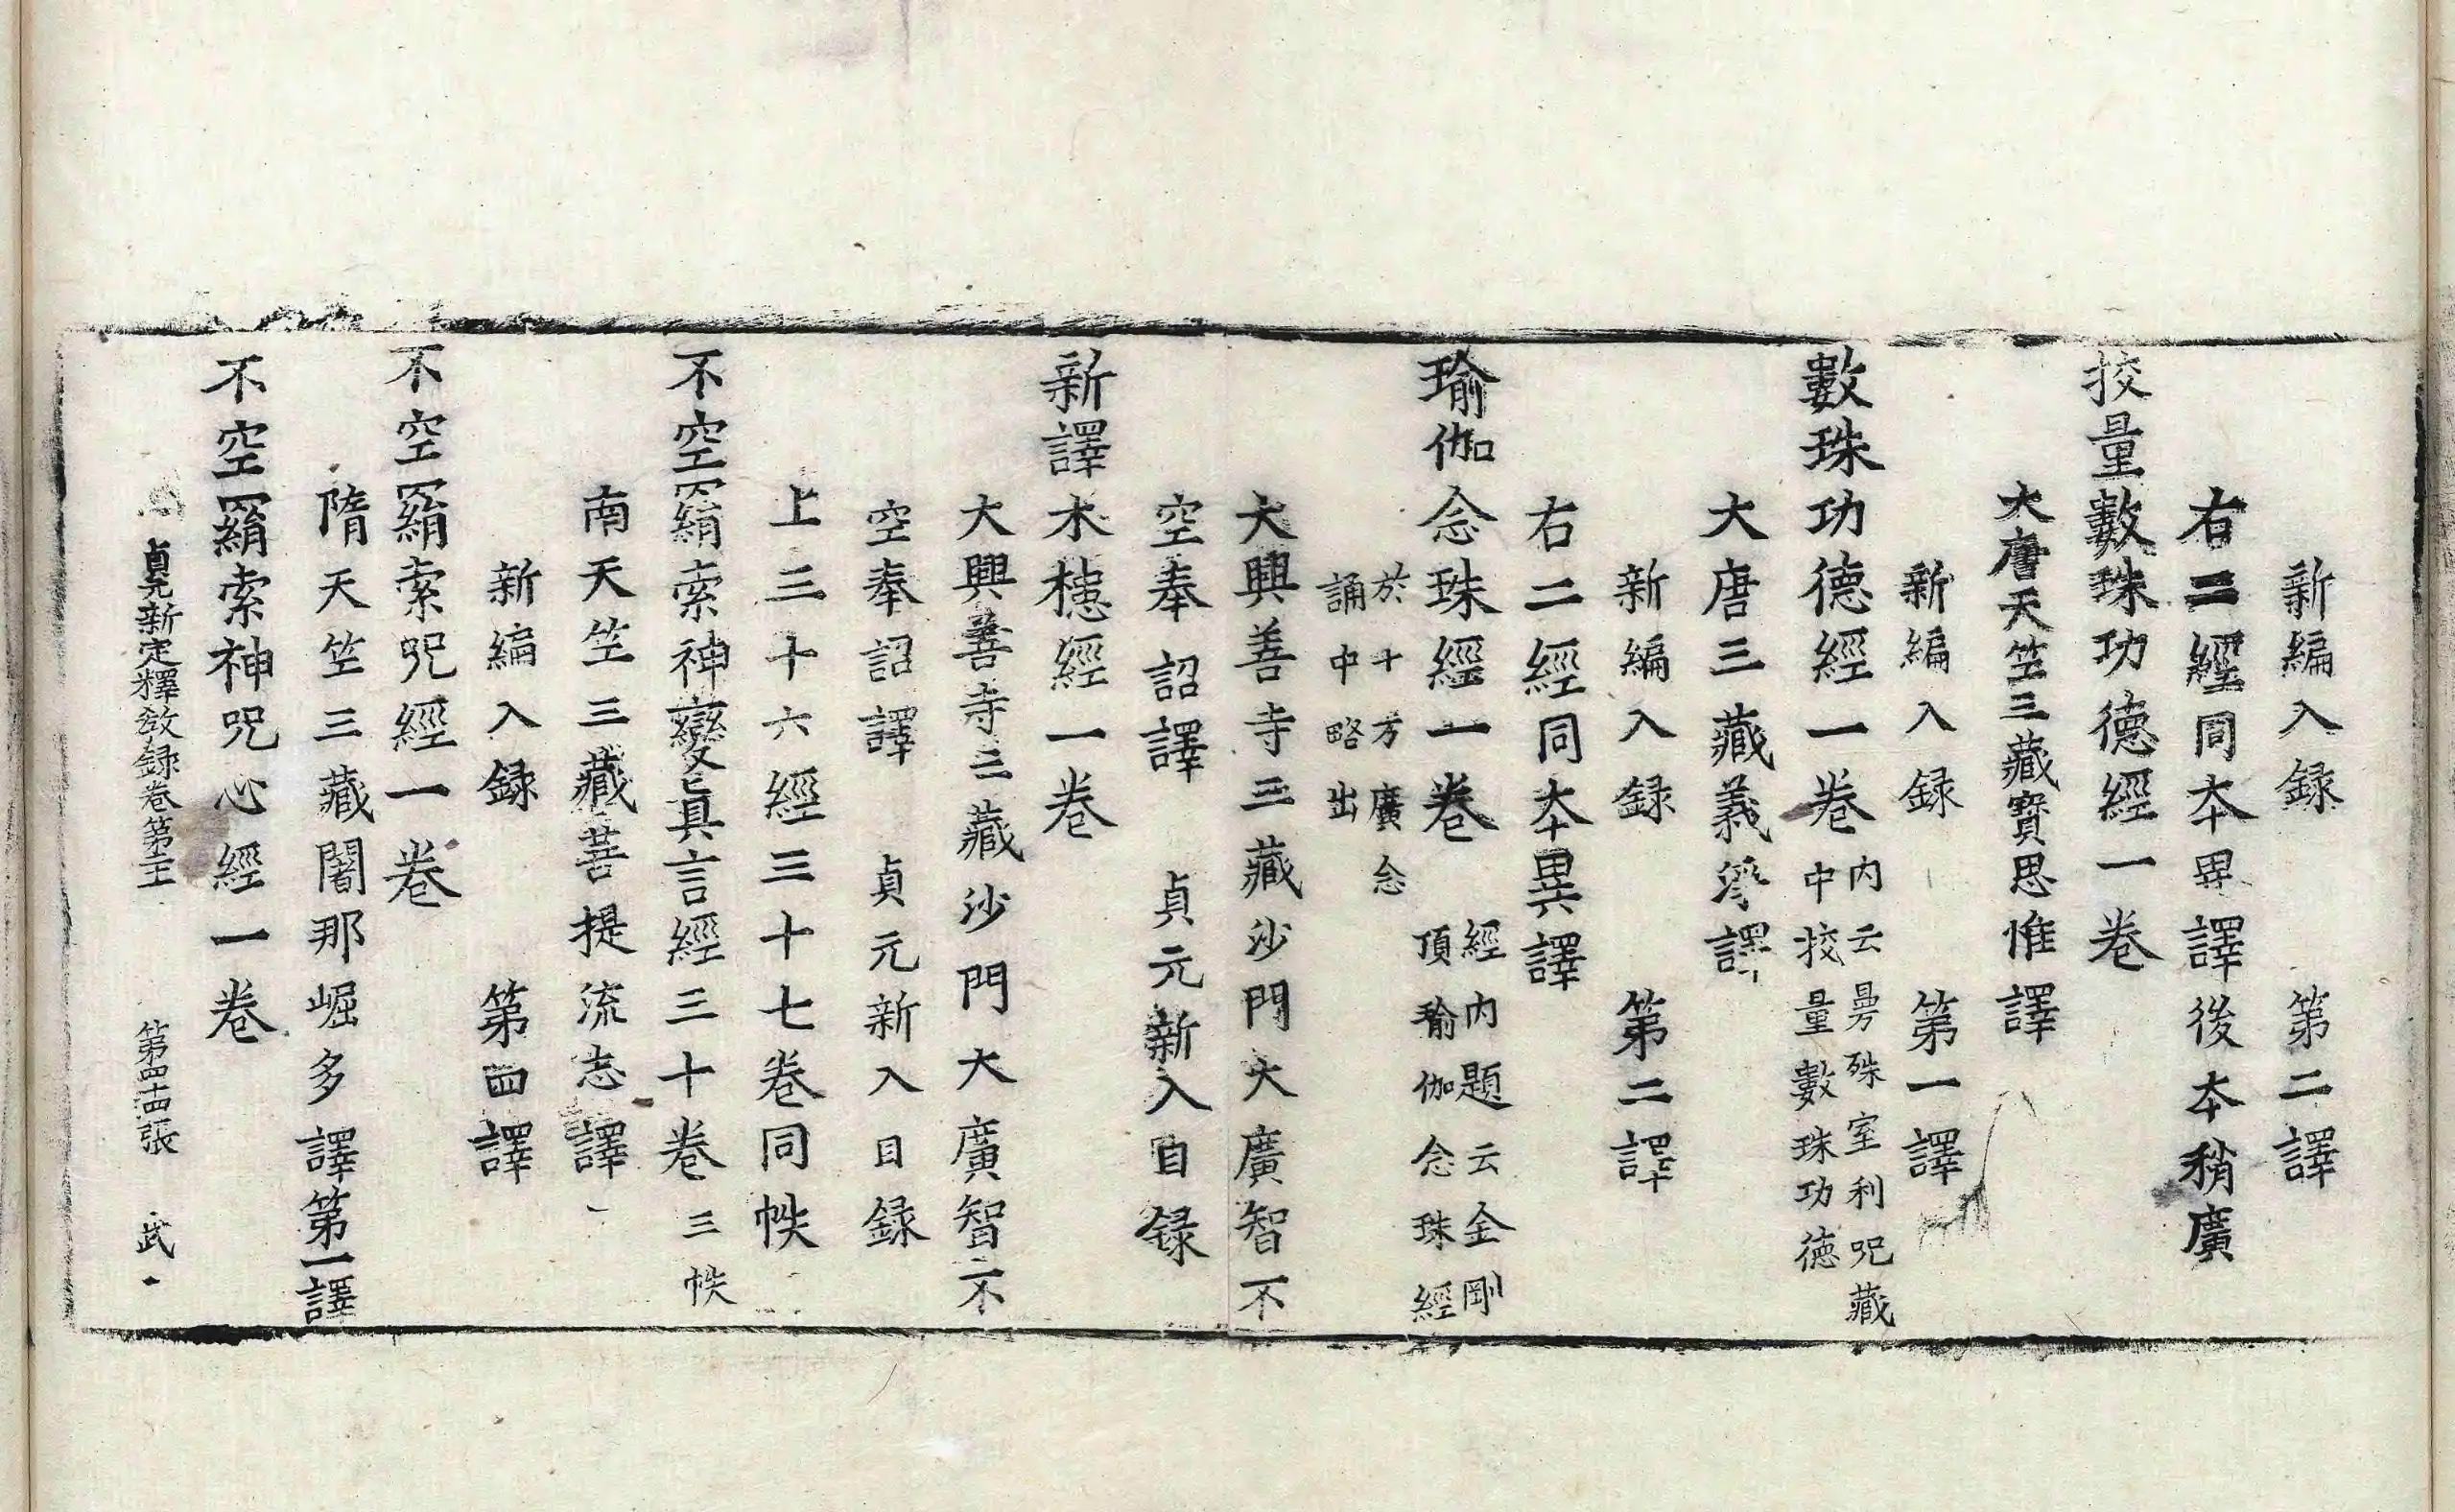 新編入録　第二譯
右二經同本異譯後本稍廣
挍量數珠功德經一卷
大唐天竺三藏寶思惟譯
新編入録　第一譯
數珠功德經一卷内云曼殊室利呪藏
中挍量數珠功德
大唐三藏義淨譯
新編入録　第二譯
右二經同本異譯
瑜伽念珠經一卷經内題云金剛
頂瑜伽念珠經
於十方廣念
誦中略出
大興善寺三藏沙門大廣智不
空奉詔譯　貞元新入目録
新譯木槵經一卷
大興善寺三藏沙門大廣智不
空奉詔譯　貞元新入目録
上三十六經三十七卷同帙
不空羂索神變眞言經三十卷三帙
南天竺三藏菩提流志譯
新編入録　第四譯
不空羂索呪經一卷
隋天竺三藏闍那崛多譯第一譯
不空羂索神呪心經一卷
貞元新定釋教録卷第二十　第四十四張　武